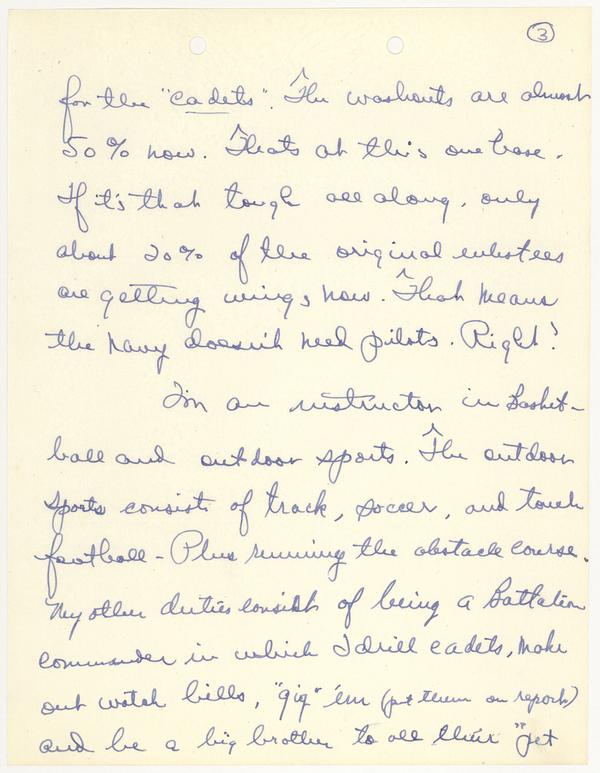 3
for the "cadets". The washouts are almost
50% now. Thats at this one base.
If it's that tough all along, only
about 20% of the original enlistees
are getting wings now. That means
the Navy doesn't need pilots. Right?
I'm an instructor in Basket-
ball and outdoor sports. The outdoor
sports consists of track, soccer, and touch
football - Plus running the obstacle course.
My other duties consist of being a Battalion
commander in which I drill cadets, make
out watch bills, "gig" 'em (put them on report)
and be a big brother to all their "pet